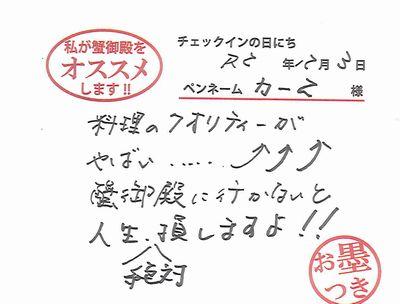 私が蟹御殿を
オススメ
します!!
チェックインの日にち
R5年12月3日
ペンネーム カーズ 様
料理のクオリティーが
やばい……↑↑↑
蟹御殿に行かないと
人生、損しますよ!!
絶対
お墨
つき